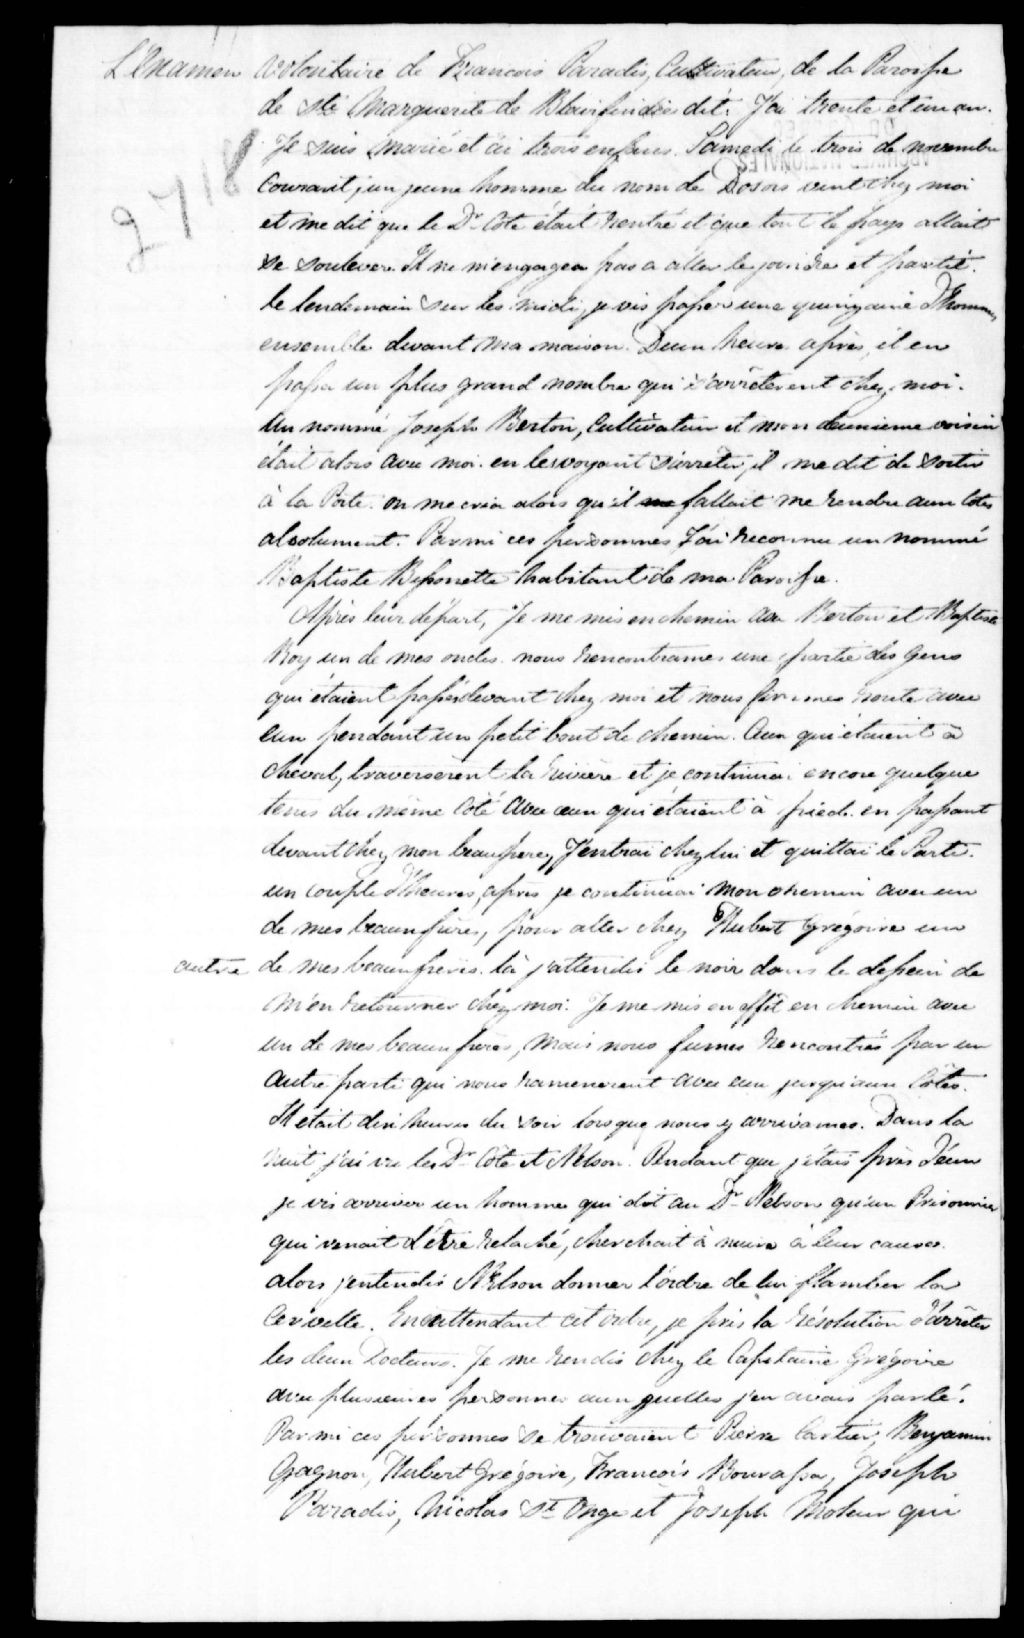 L'Examen volontaire de Francois Paradis, Cultivateur, de la Paroisse
de Ste Marguerite de Blairfindie dit. J'ai trente et un an.
Je suis marié et ai trois enfans. Samedi le trois de novembre
2718
courant, un jeune homme du nom de Dosois vint chez moi
et me dit que le Dr Coté était rentré et que tout le pays allait
se soulever. Il ne m'engagea pas a aller le joindre et partit.
le lendemain sur les midi, je vis passer une quinzaine d'hommes
ensemble devant ma maison. D'eun heure après, il en
passa un plus grand nombre qui s'arrêterent chez moi.
Un nommé Joseph Berton, Cultivateur et mon deuxieme voisin
était alors avec moi. en les voyant s'arrêter, il me dit de sortir
à la Porte. on me cria alors qu'il fallait me rendre aux Cotes
absolument. Parmi ces personnes J'ai reconnu un nommé
Baptiste Bissonette habitant de ma Paroisse.
Après leur départ, Je me mis en chemin avec Berton et Baptiste
Roy un de mes oncles. nous rencontrames une partie des gens
qui étaient passés devant chez moi et nous fimes route avec
eux pendant un petit bout de chemin. Ceux qui étaient à
cheval, traverserent la rivière et je continuai encore quelque
tems du même Coté avec ceux qui étaient à pied. en passant
devant chez mon beaupere, J'entrai chez lui et quittai le Parti.
un couple d'heures après je continuai mon chemin avec un
de mes beaux freres, pour aller chez Hubert Grégoire un
autre de mes beaux freres. là j'attendis le noir dans le dessein de
m'en retourner chez moi. Je me mis en effet en chemin avec
un de mes beaux freres, mais nous fumes rencontrés par un
autre parti qui nous ramenerent avec eux jusqu'aux Côtes.
Il était dix heures du soir lorsque nous y arrivames. Dans la
nuit j'ai vu les Dr Côté et Nelson. Pendant que j'étais près d'eux
je vis arriver un homme qui dit au Dr Nelson qu'un Prisonnier
qui venait d'être relaché, cherchait à nuire à leur cause.
alors j'entendis Nelson donner l'ordre de lui flamber la
Cervelle. En entendant cet ordre, je pris la résolution d'arrêter
les deux Docteurs. Je me rendis chez le Capitaine Grégoire
avec plusieures personnes aux quelles j'en avais parlé.
Parmi ces personnes se trouvaient Pierre Cartier, Benjamin
Gagnon, Hubert Grégoire, Francois Bourassa, Joseph
Paradis, Nicolas St Onge et Joseph Moleur qui